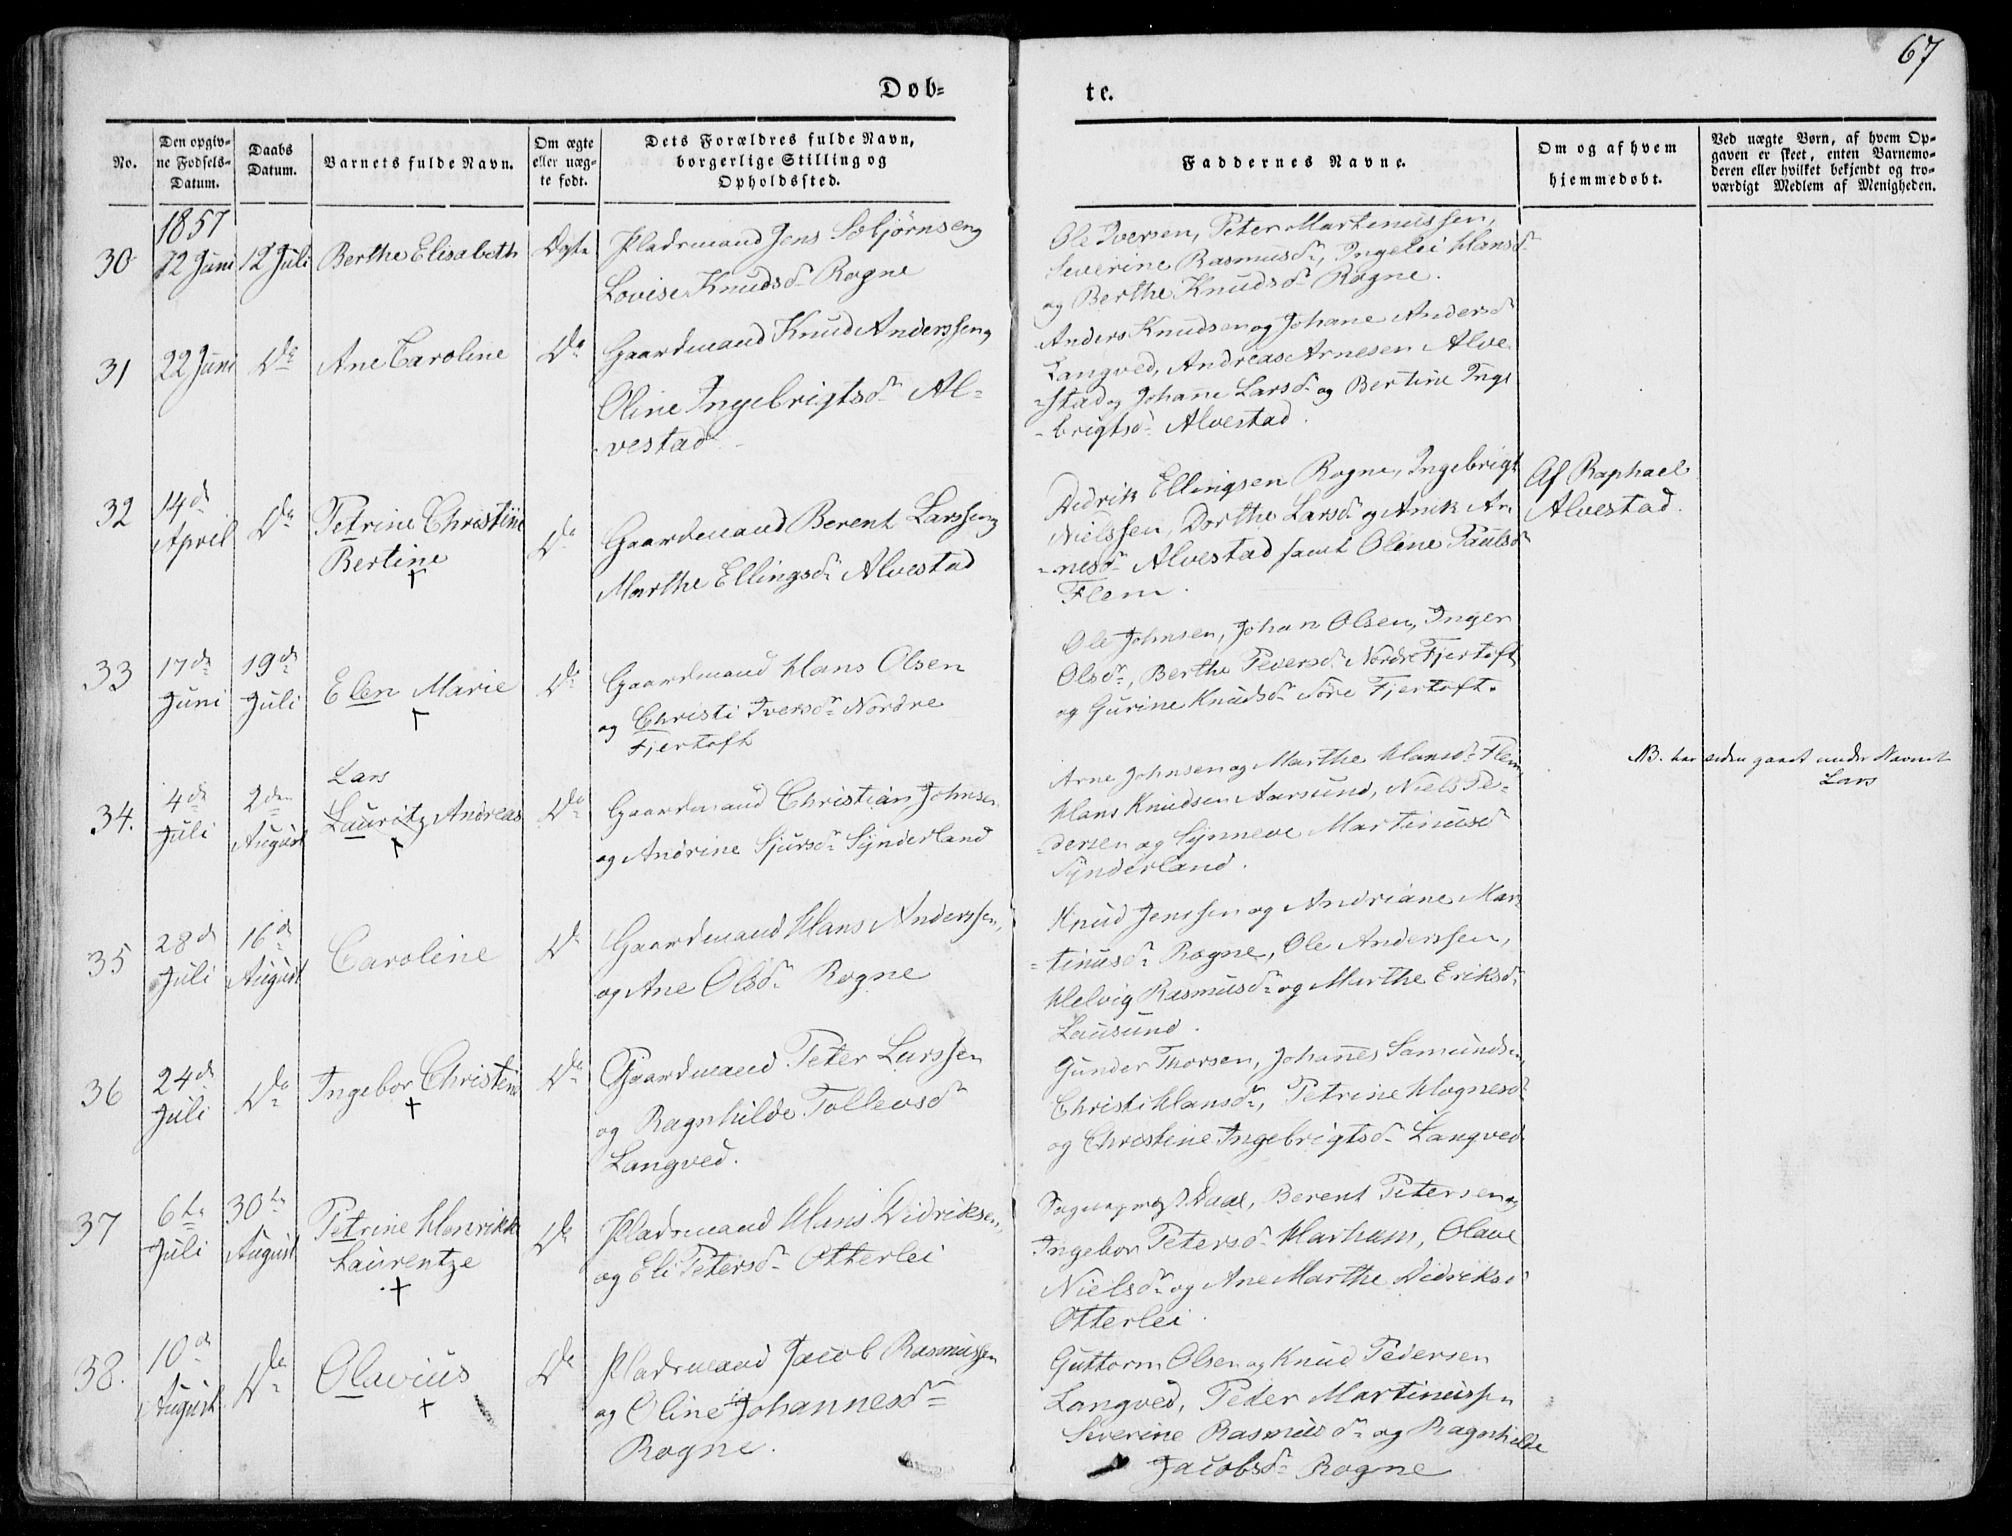 67
Døb-
te.
No.
Den opgiv-
ne Fødsels-
Datum.
Daabs
Datum.
Barnets fulde Navn.
Om ægte
eller uæg-
te født.
Dets Forældres fulde Navn,
borgerlige Stilling og
Opholdssted.
Faddernes Navne.
Om og af hvem
hjemmedøbt.
Ved uægte Børn, af hvem Op-
gaven er skeet, enten Barnemo-
deren eller hvilket bekjendt og tro-
værdigt Medlem af Menigheden.
1857
30
12 Juni
12 Juli
Berthe Elisabeth
Ægte
Pladsmand Jens Sebjørnsen og
Lovise Knudsdr Rogne
Ole Iversen, Peter Martinussen,
Severine Rasmusdr, Ingelei Hansdr
og Berthe Knudsdr Rogne.
31
22 Juni
Do
Ane Caroline
Do
Gaardmand Knud Anderssen og
Oline Ingebrigtsdr Al-
vestad
Anders Knudsen og Johane Andersdr
Langved, Andreas Arnesen Alve-
-stad, Johane Larsdr og Bertine Inge
-brigtsdr Alvestad.
32
14de
April
Do
Petrine Christine
Bertine
+
Do
Gaardmand Berent Larssen og
Marthe Ellingsdr Alvestad
Didrik Ellingsen Rogne, Ingebrigt
Nielssen, Dorthe Larsdr og Anne Ar-
-nesdr Alvestad samt Oline Paulsdr
Flem.
Af Raphael
Alvestad.
33
17de
Juni
19de
Juli
Elen Marie
+
Do
Gaardmand Hans Olsen
og Christi Iversdr Nordre
Fjertoft
Ole Johnsen, Johan Olsen, Inger
Olsdr, Berthe Pedersdr Nordre Fjertoft
og Gurine Knudsdr Søre Fjertoft.
34.
4de
Juli
2den
August
Lars
Lauritz Andreas
+
Do
Gaardmand Christian Johnsen
og Andrine Sjursdr Synderland
Arne Johnsen og Marthe Hansdr Flem
Hans Knudsen Aarsund, Niels Pe-
-dersen og Synneve Martinusdr
Synderland.
NB. har siden gaaet under Navnet
Lars
35
28de
Juli
16de
August
Caroline
Do
Gaardmand Hans Anderssen,
og Ane Olsdr Rogne
Knud Jenssen og Andriane Mar
-tinusdr Rogne, Ole Anderssen,
Helvig Rasmusdr og Marthe Eriksdr
Lausund.
36
24de
Juli
Do
Ingebor Christine
+
Do
Gaardmand Peter Larssen
og Ragnhilde Tollevsdr
Langved.
Gunder Thorsen, Johannes Samundsen,
Christi Hansdr, Petrine Hognesdr
og Christine Ingebrigtsdr Langved
37
6te
Juli
30te
August
Petrine Henrikke
Laurentze
+
Do
Pladsmand Hans Didriksen,
og Eli Petersdr Otterlei
Daae, Berent Petersen og
Ingebor Petersdr Harham, Olave
Nielsdr og Ane Marthe Didriksdr
Otterlei.
38.
10de
August
Do
Olavius
+
Do
Pladsmand Jacob Rasmussen
og Oline Johannesdr
Rogne.
Guttorm Olsen og Knud Pedersen
Langved, Peder Martinussen
Severine Rasmusdr og Ragnhilde
Jacobsdr Rogne